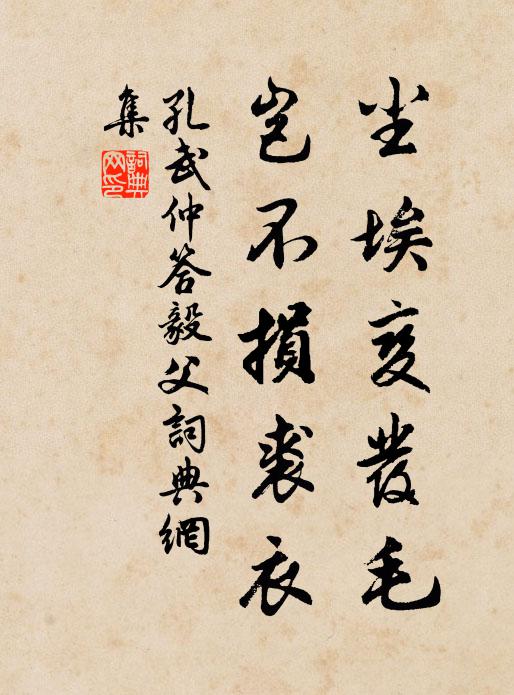 尘埃变发毛
岂不损裘衣
孔武仲答毅父詞典網
集
詞典网印